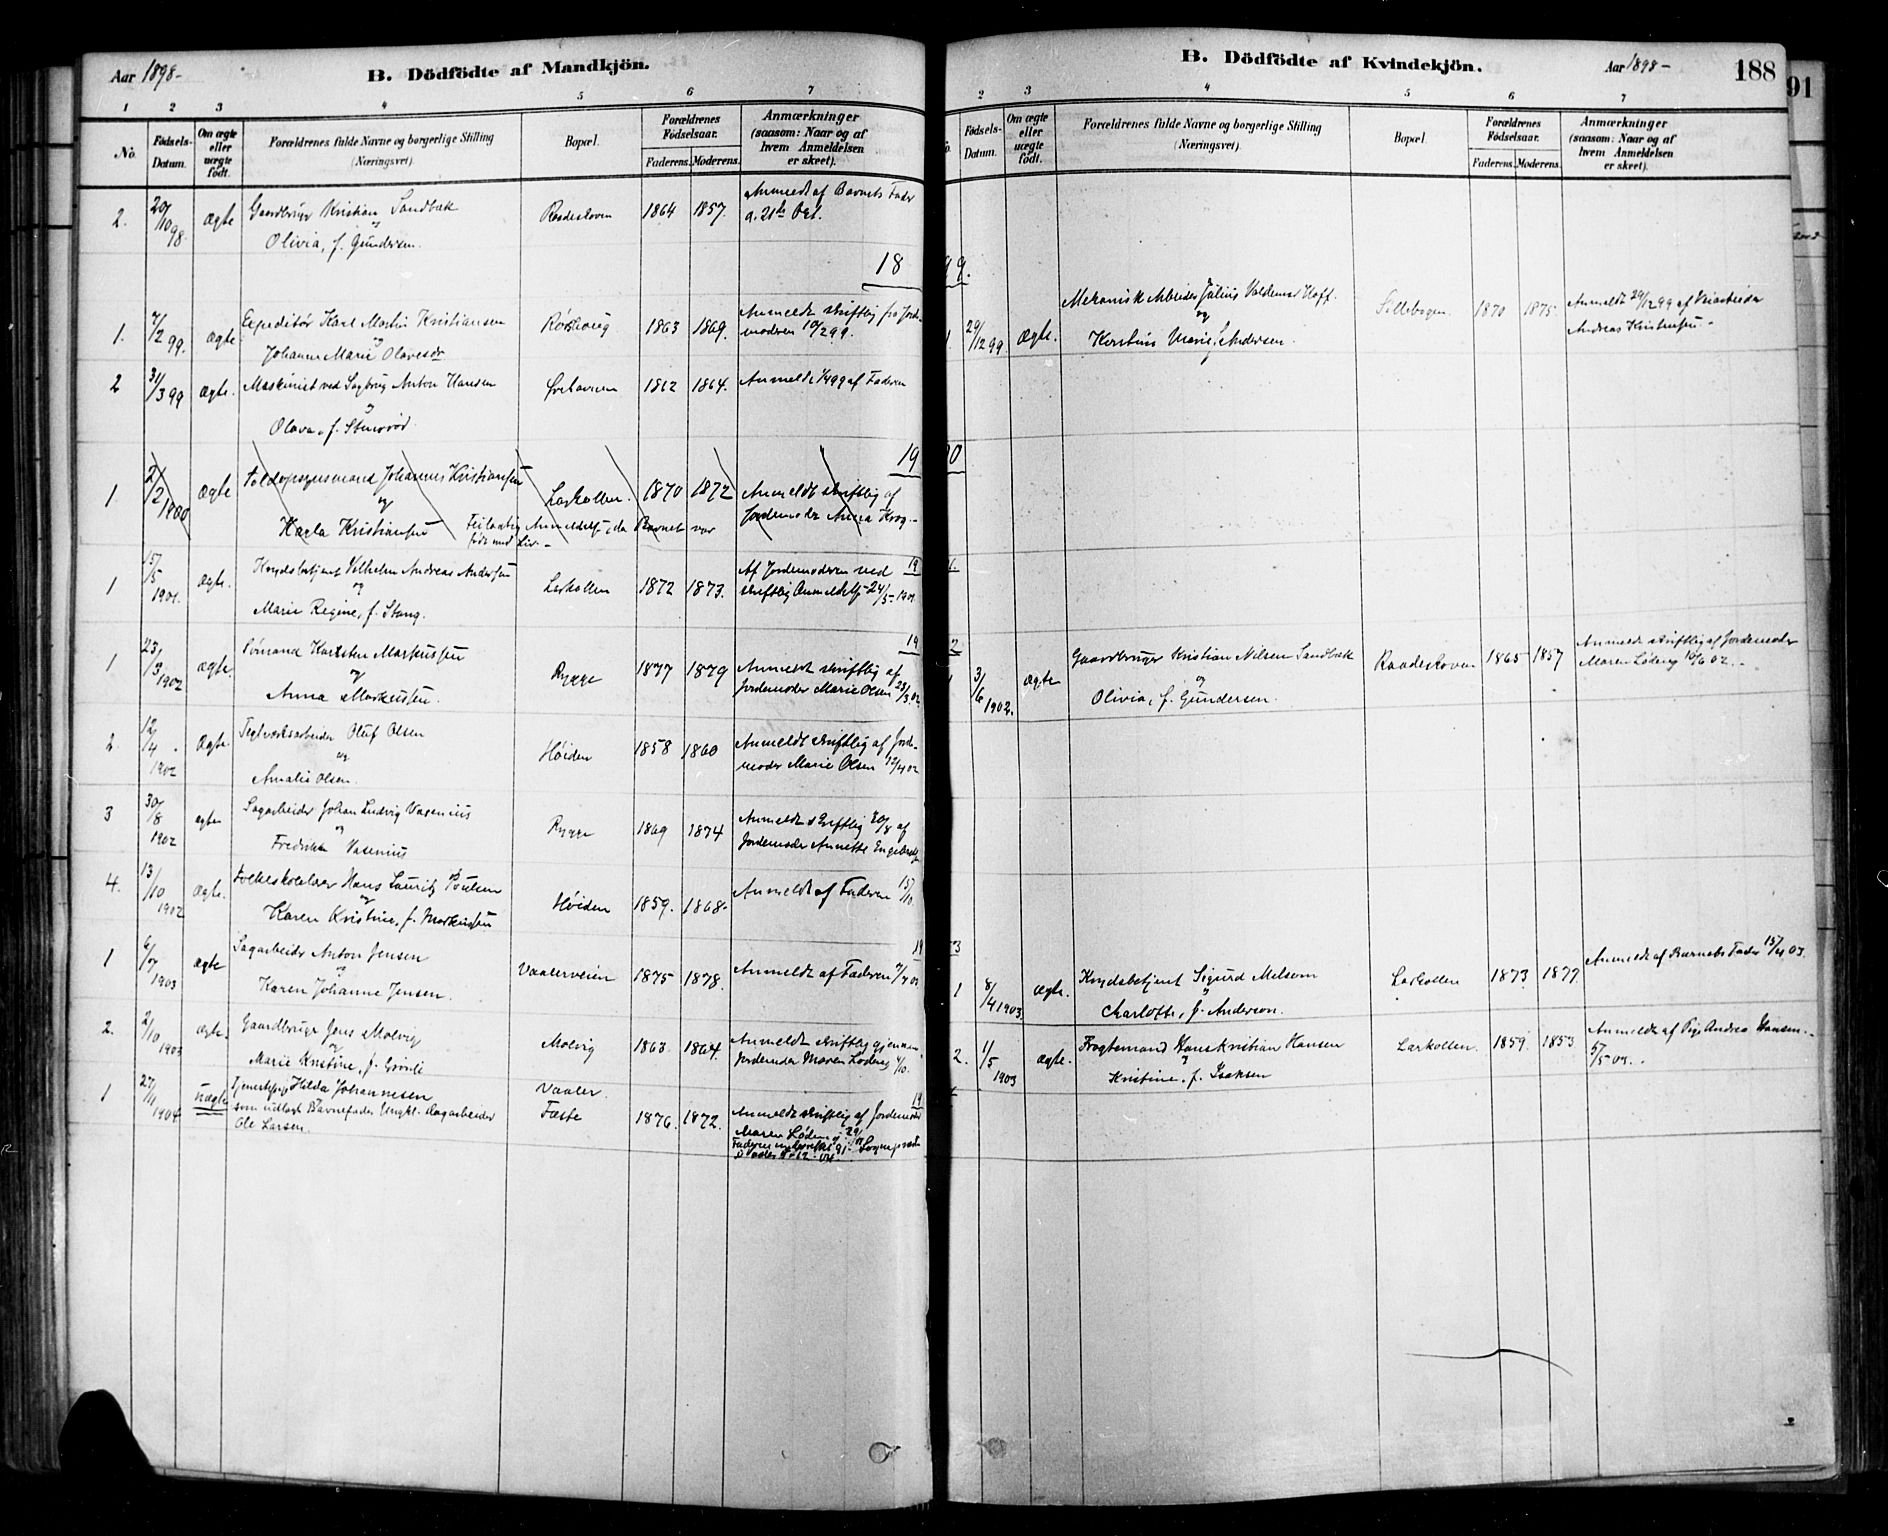 Aar 1898-
B. Dödfödte af Mandkjön.
1 2 3 4 5 6 7
No.
Födsels-
Datum.
Om ægte
eller
uægte
födt.
Forældrenes fulde Navne og borgerlige Stilling
(Næringsvei)
Bopæl.
Forældrenes
Födselsaar.
Faderens. Moderens.
Anmærkninger
(saasom: Naar og af
hvem Anmeldelsen
er skeet).
2. 20/10 98. Ægte Gaardbruger Kristian Sandbæk
og
Olivia, f. Gundersen.
Raadeskoven 1864 1857.
Anmeldt af Barnets Fader
d. 21de Oct.
18
1. 7/2 99. Ægte Expeditør Karl Martin Kristiansen
og
Johanne Marie Olavesdr
1863 1869.
Anmeldt skriftlig fra Jorde-
moderen 10/2 99.
2 31/3 99 Ægte. Maskinist ved Sagbrug Anton Hansen
og
Olava, f.
1862 1864. Anmeldt 1/4 99 af Faderen
19
1 2/2 1900 Ægte Toldopsynsmand Johannes Kristiansen
og
Karla Kristiansen
Larkollen. 1870 1872
Anmeldt skriftlig af
Jordemoder Anna Krog.-
Feilagtig Anmeldelse, da Barnet var
født med Liv.-
19
1 15/5 1901. Ægte. Vilhelm Andreas Andersen
og
Marie Regine, f. Stang.
Larkollen 1872 1873.
Af Jordemoderen ved
skriftlig Anmeldelse 24/5 1901
19
1 23/3 1902 Ægte. Sømand Karsten Markussen
og
Anna Markussen.
Rygge 1877 1879
Anmeldt skriftlig af
Jordemoder Marie Olsen 23/3 02.
2. 12/4 1902 Ægte. Teglværksarbeider Oluf Olsen
og
Amalie Olsen.
Høiden 1858 1860
Anmeldt skriftlig af Jorde-
moder Marie Olsen 12/4 02
3 30/8 1902 Sagarbeider Johan Ludvig Vasenius
og
Fredrikke Vasenius
Rygge 1869 1874
Anmeldt skriftlig 30/8 af
Jordemoder Annette
4. 13/10 1902 Ægte. Folkeskolelærer Hans Lauritz Poulsen
og
Karen Kristine, f. Markussen
Høiden 1859. 1868.
Anmeldt af Faderen 15/10.
19
1 1903 Ægte Sagarbeider Anton Jensen
og
Karen Johanne Jensen.
Vaalerveien 1875 1878. Anmeldt af Faderen
2. 2/10 1903 Ægte. Gaardbruger Jens Molvig
og
Marie Kristine, f. Grønli
Molvig 1863. 1864.
Anmeldt skriftlig gjennem
Jordemoder Maren Lødeng
19
1 27/11 1904 Uægte Hilda Johannesen
som udlagt Barnefader Ungkl. Sagarbeider
Ole Larsen.
Vaaler.
Fæste 1876. 1872.
Anmeldt skriftlig af Jordemoder
Maren Lødeng 29/11
B. Dödfödte af Kvindekjön. Aar 1898- 188
2 3 4 5 6 7
Födsels-
Datum.
Om ægte
eller
uægte
födt.
Forældrenes fulde Navne og borgerlige Stilling
(Næringsvei).
Bopæl.
Forældrenes
Födselsaar.
Faderens. Moderens.
Anmærkninger
(saasom: Naar og af
hvem Anmeldelsen
er skeet).
91
99.
1 29/12 99 Ægte. Mekanisk Arbeider Julius Valdemar Hoff.
og
Kerstine Marie, f. Andersen.
1870 1875.
Anmeldt 29/12 99 af
Andreas Kristensen.-
00
1.
2
1 3/6 1902. Ægte Gaardbruger Kristian Nilsen Sandbæk
og
Olivia, f. Gundersen.
Raadeskoven 1865 1857
Anmeldt skriftlig af Jordemoder
Maren Lødeng 10/6 02.-
3
1 8/4 1903. Ægte. Sigurd Melsom
og
Charlotte, f. Anderson.
Larkollen 1873 1877.
Anmeldt af Barnets Fader 15/4 03.
2. 1/5 1903 Ægte. Fragtemand Hans Kristian Hansen
og
Kristine, f. Isaksen
Larkollen. 1859. 1853
Anmeldt af Pige Andrea Hansen.-
5/5 03.